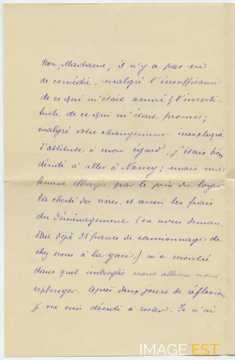 Non, Madame, il n'y a pas eu
de comédie. malgré l'insuffisance
de ce qui m'était donné & l'incerti-
tude de ce qui m'était promis;
malgré votre changement inexpliqué
d'attitude à mon égard, j'étais bien
décidé à aller à Nancy; mais ma
femme par le prix du loyer
la cherté des vivres, et aussi les frais
du déménagement (on avait deman-
dait déjà 35 francs de camionnage de
chez nous à la gare!) m'a montré
dans quel nous allions nous
replonger. Après deux jours de réflexion
je me suis décidé à rester. Je n'ai
IMAGE'EST